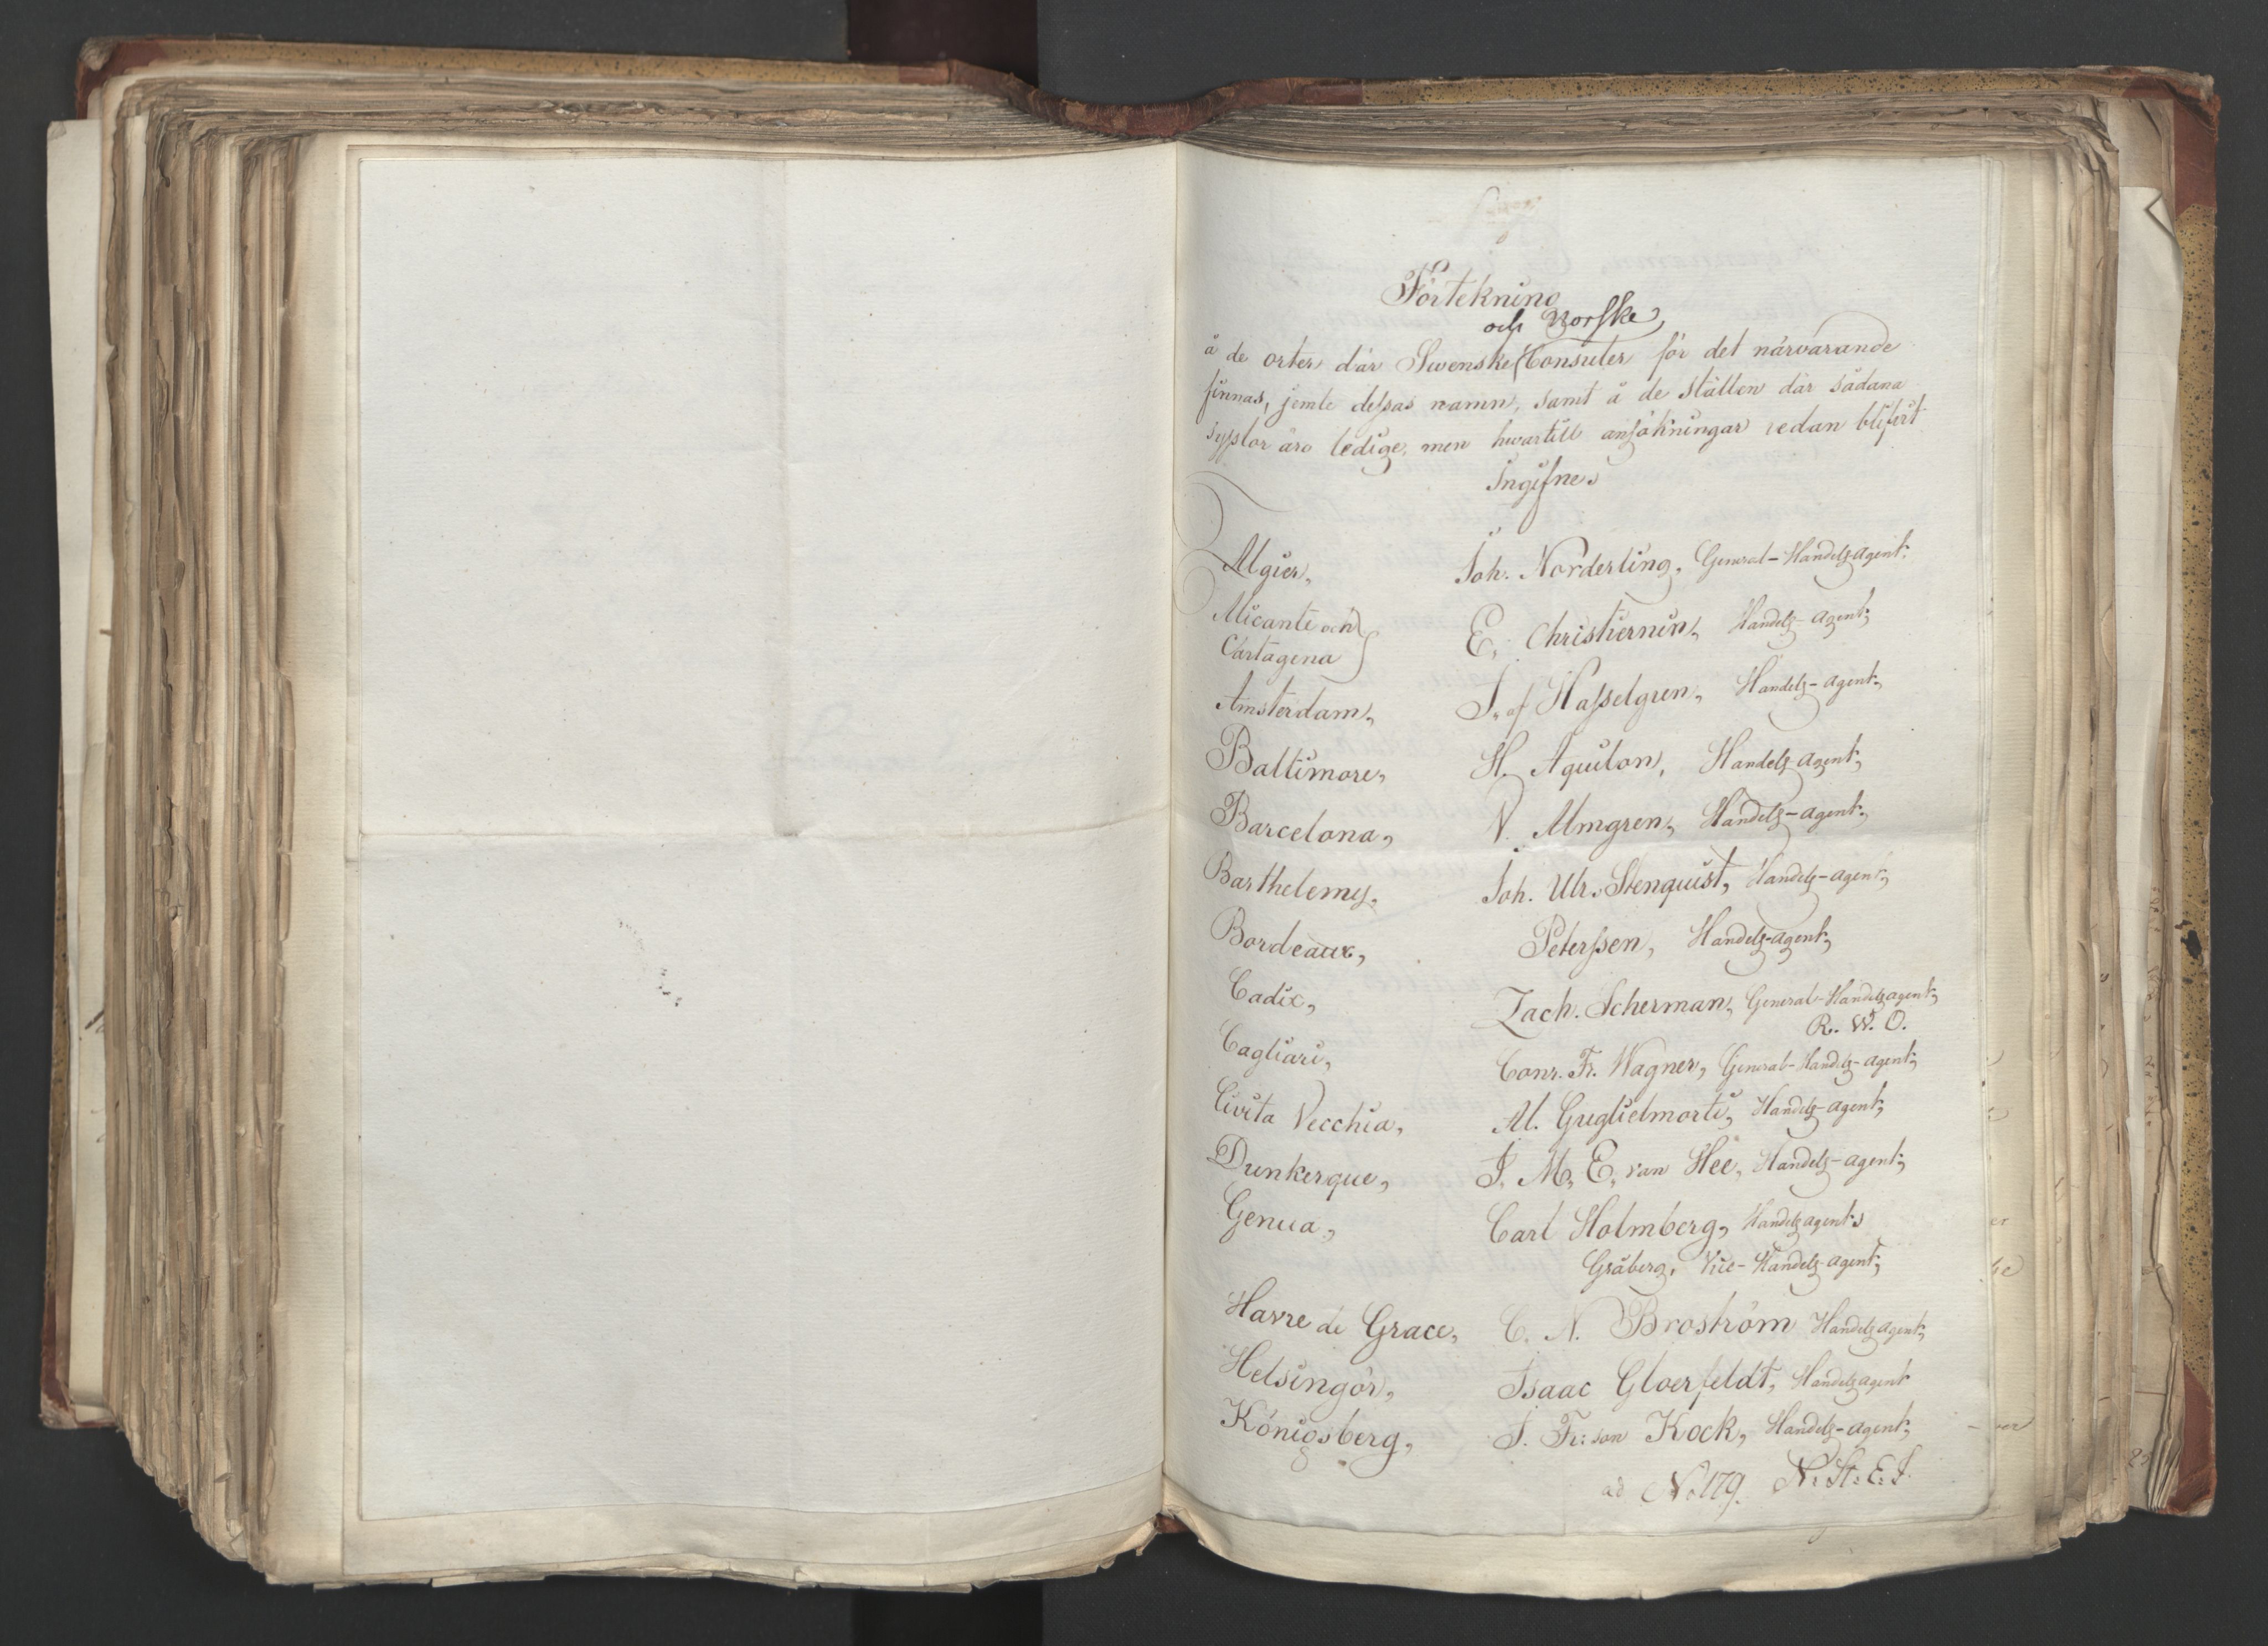 Förtekning
och Norske
å de orter där Swenske Consuler för det närvarande
finnas, jemte dessas namn, samt å de ställen där sådana
sysslor äro ledige, men hwartill ansökningar redan blifvit
Ingifne.
Algier, Joh. Norderling, General-Handelsagent,
Alicante och
Cartagena } E. Christiernin, Handels-agent,
Amsterdam, J. af Hasselgren, Handels-agent,
Baltimore, H. Aquilon, Handels-agent,
Barcelona, V. Almgren, Handels-agent,
Barthelemy, Joh. Ulr. Stenquist, Handels-agent,
Bordeaux, Peterssen, Handels-agent,
Cadix, Zach. Scherman, General-Handelsagent,
R. W. O.
Cagliari, Conr. Fr. Wagner, General-Handels-agent,
Civita Vecchia, Al. Guglielmorti, Handels-agent,
Dunkerque, J. M. E. van Hee, Handels-agent,
Genua, Carl Holmberg, Handelsagent,
Gråberg, Vice-Handels-agent,
Havre de Grace, C. N. Broström Handelsagent,
Helsingör, Isaac Gloerfeldt, Handelsagent
Königsberg, J. Fr: son Kock, Handels-agent,
ad No 179. N. St. E. J.